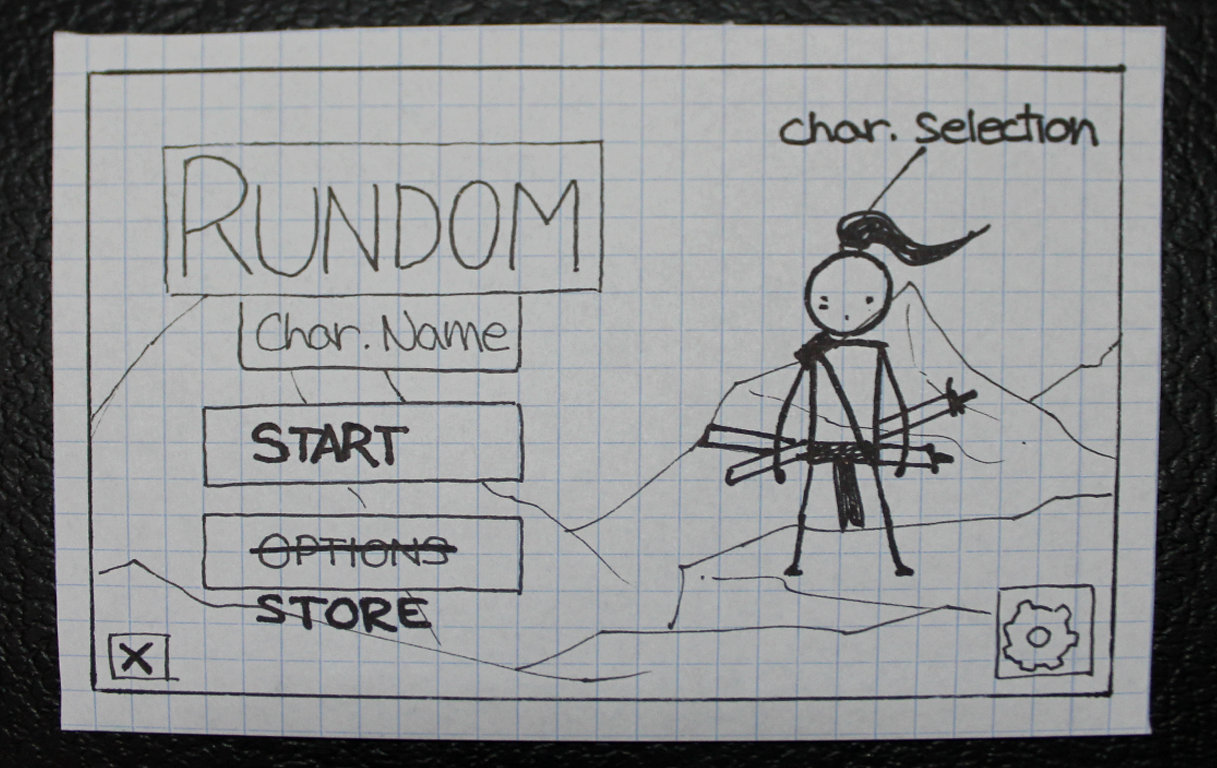 char. selection
RUNDOM
Char. Name
START
OPTIONS
STORE
X